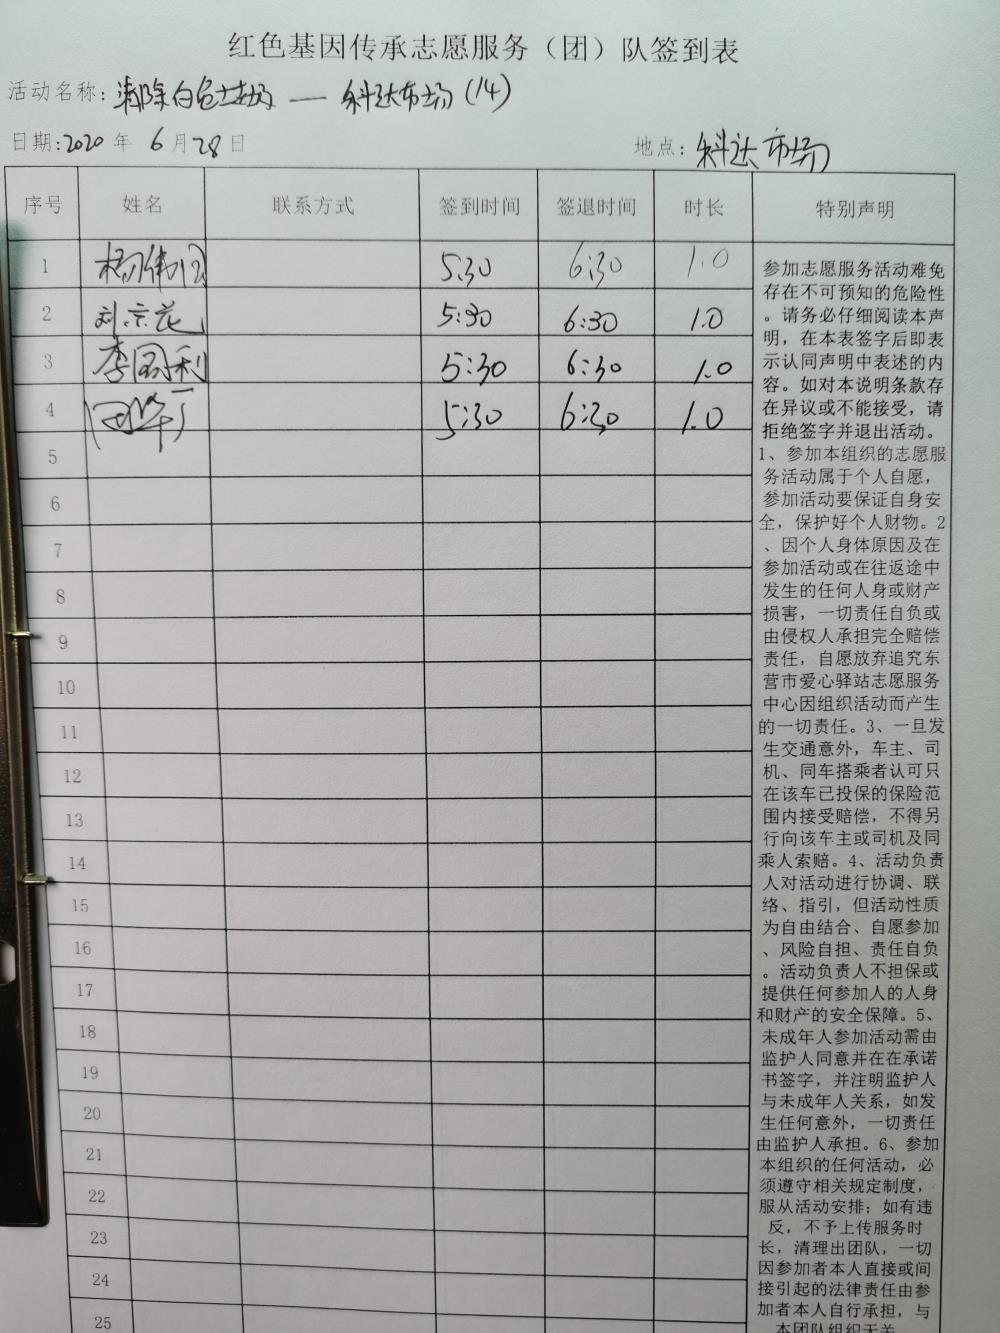 红色基因传承志愿服务（团）队签到表
活动名称：清除白色垃圾 — 科达市场（14）
日期：2020 年 6 月 28 日 地点：科达市场
序号 姓名 联系方式 签到时间 签退时间 时长 特别声明
1 杨伟 5:30 6:30 1.0
2 刘宗花 5:30 6:30 1.0
3 李国利 5:30 6:30 1.0
4 5:30 6:30 1.0
5
6
7
8
9
10
11
12
13
14
15
16
17
18
19
20
21
22
23
24
25
参加志愿服务活动难免
存在不可预知的危险性
。请务必仔细阅读本声
明，在本表签字后即表
示认同声明中表述的内
容。如对本说明条款存
在异议或不能接受，请
拒绝签字并退出活动。
1、参加本组织的志愿服
务活动属于个人自愿，
参加活动要保证自身安
全，保护好个人财物。2
、因个人身体原因及在
参加活动或在往返途中
发生的任何人身或财产
损害，一切责任自负或
由侵权人承担完全赔偿
责任，自愿放弃追究东
营市爱心驿站志愿服务
中心因组织活动而产生
的一切责任。3、一旦发
生交通意外，车主、司
机、同车搭乘者认可只
在该车已投保的保险范
围内接受赔偿，不得另
行向该车主或司机及同
乘人索赔。4、活动负责
人对活动进行协调、联
络、指引，但活动性质
为自由结合、自愿参加
、风险自担、责任自负
。活动负责人不担保或
提供任何参加人的人身
和财产的安全保障。5、
未成年人参加活动需由
监护人同意并在在承诺
书签字，并注明监护人
与未成年人关系，如发
生任何意外，一切责任
由监护人承担。6、参加
本组织的任何活动，必
须遵守相关规定制度，
服从活动安排；如有违
反，不予上传服务时
长，清理出团队，一切
因参加者本人直接或间
接引起的法律责任由参
加者本人自行承担，与
本团队组织无关